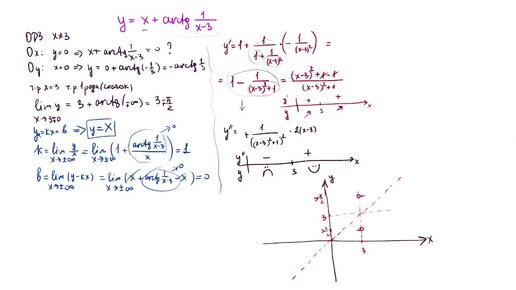 y = x + arctg 1/(x-3)
ОДЗ x≠3
Ox: y=0 => x + arctg 1/(x-3) = 0 ?
Oy: x=0 => y = 0 + arctg(-1/3) = -arctg 1/3
т.р x=3 т.р 1 рода (скачок)
lim y = 3 + arctg(±∞) = 3 ± π/2
x→3±0
y=kx+b => y=x
k = lim y/x = lim (1 + arctg 1/(x-3) / x) = 1
x→±∞ x→±∞
→0
b = lim (y-kx) = lim (x + arctg 1/(x-3) - x) = 0
x→±∞ x→±∞
→0
y' = 1 + 1/(1 + 1/(x-3)²) · (- 1/(x-3)²) =
= 1 - 1/((x-3)²+1) = ((x-3)²+1-1)/((x-3)²+1)
y' + + x
y 3
y'' = + 1/((x-3)²+1)² · 2(x-3)
y'' - +
y 3 x
y
3
3
x